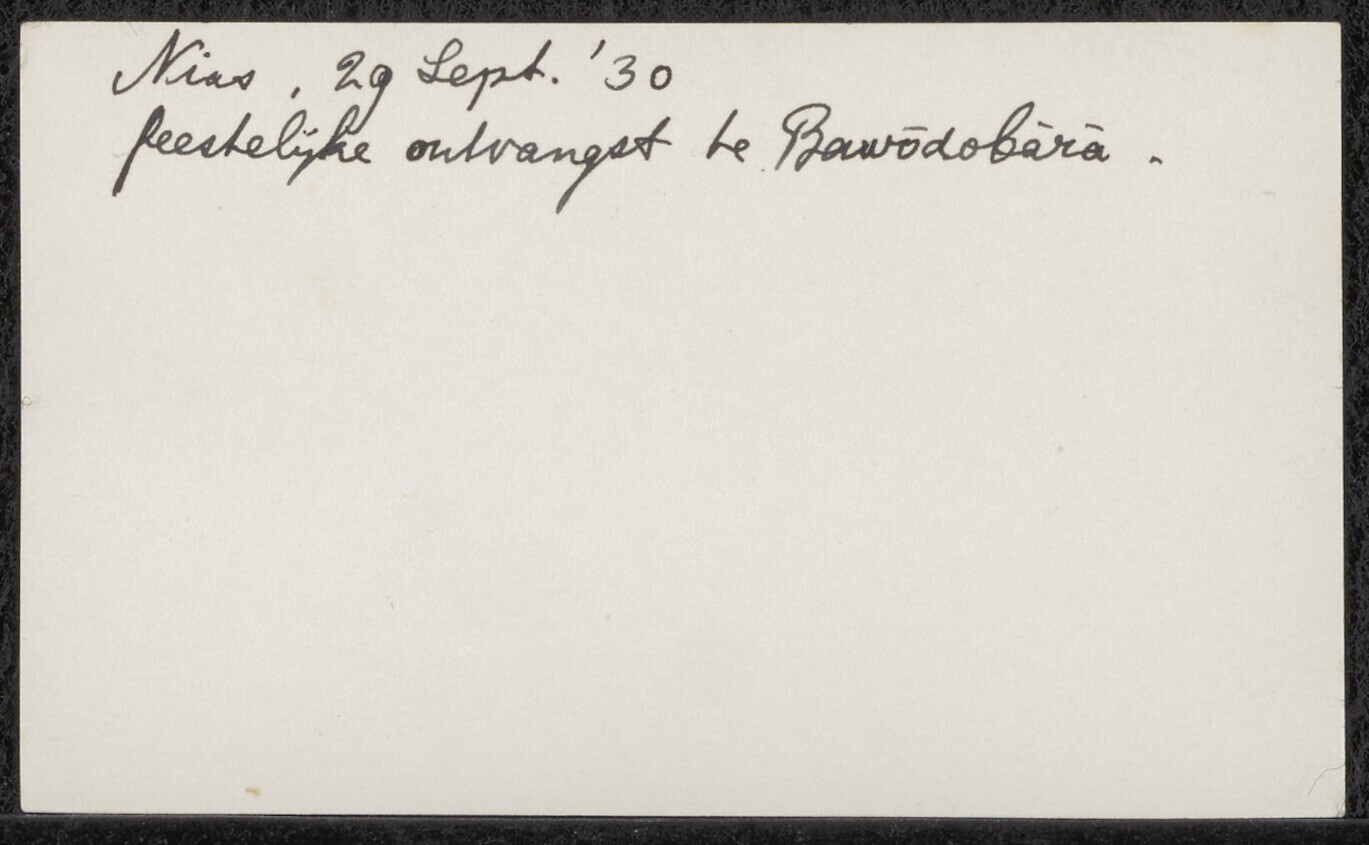 Nias, 29 Sept. '30
feestelijke ontvangst te Bawōdobārā.